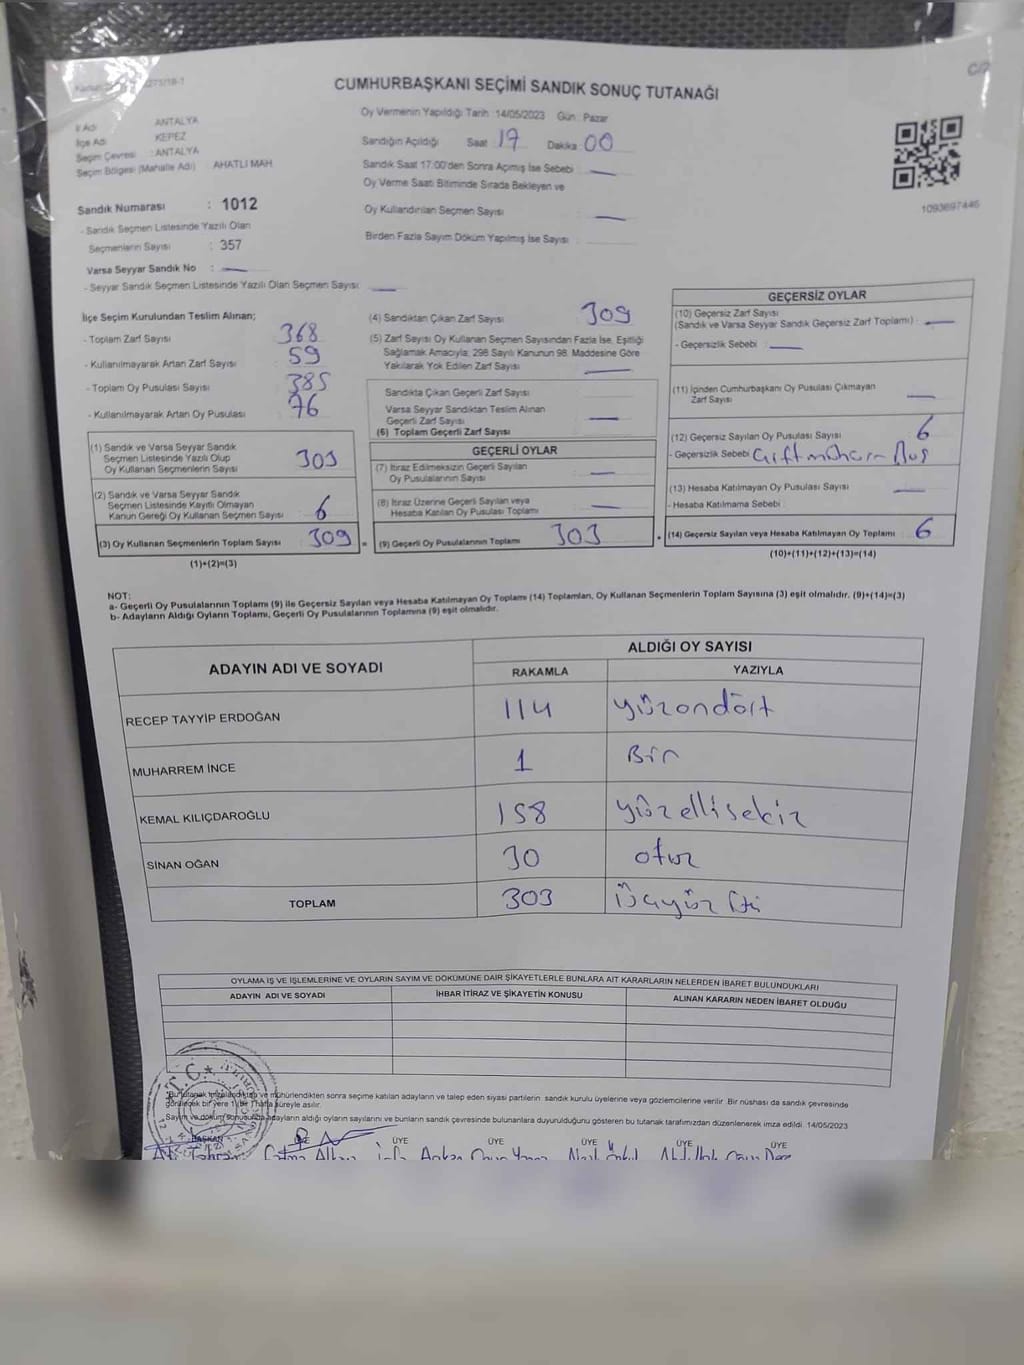 C/2
CUMHURBAŞKANI SEÇİMİ SANDIK SONUÇ TUTANAĞI
Oy Vermenin Yapıldığı Tarih :14/05/2023 Gün : Pazar
İl Adı : ANTALYA
İlçe Adı : KEPEZ
Seçim Çevresi : ANTALYA
Seçim Bölgesi (Mahalle Adı) : AHATLI MAH
Sandık Numarası : 1012
- Sandık Seçmen Listesinde Yazılı Olan
Seçmenlerin Sayısı : 357
Varsa Seyyar Sandık No : —
- Seyyar Sandık Seçmen Listesinde Yazılı Olan Seçmen Sayısı: —
Sandığın Açıldığı Saat 17 Dakika 00
Sandık Saat 17:00'den Sonra Açımış İse Sebebi : —
Oy Verme Saati Bitiminde Sırada Bekleyen ve
Oy Kullandırılan Seçmen Sayısı : —
Birden Fazla Sayım Döküm Yapılmış İse Sayısı :
1093697446
İlçe Seçim Kurulundan Teslim Alınan;
- Toplam Zarf Sayısı : 368
- Kullanılmayarak Artan Zarf Sayısı : 59
- Toplam Oy Pusulası Sayısı : 385
- Kullanılmayarak Artan Oy Pusulası : 76
(1) Sandık ve Varsa Seyyar Sandık
Seçmen Listesinde Yazılı Olup
Oy Kullanan Seçmenlerin Sayısı : 303
(2) Sandık ve Varsa Seyyar Sandık
Seçmen Listesinde Kayıtlı Olmayan
Kanun Gereği Oy Kullanan Seçmen Sayısı : 6
(3) Oy Kullanan Seçmenlerin Toplam Sayısı : 309
(1)+(2)=(3)
(4) Sandıktan Çıkan Zarf Sayısı : 309
(5) Zarf Sayısı Oy Kullanan Seçmen Sayısından Fazla İse, Eşitliği
Sağlamak Amacıyla; 298 Sayılı Kanunun 98. Maddesine Göre
Yakılarak Yok Edilen Zarf Sayısı : —
Sandıkta Çıkan Geçerli Zarf Sayısı :
Varsa Seyyar Sandıktan Teslim Alınan
Geçerli Zarf Sayısı : —
(6) Toplam Geçerli Zarf Sayısı
GEÇERLİ OYLAR
(7) İtiraz Edilmeksizin Geçerli Sayılan
Oy Pusulalarının Sayısı : —
(8) İtiraz Üzerine Geçerli Sayılan veya
Hesaba Katılan Oy Pusulası Toplamı : —
= (9) Geçerli Oy Pusulalarının Toplamı : 303
GEÇERSİZ OYLAR
(10) Geçersiz Zarf Sayısı
(Sandık ve Varsa Seyyar Sandık Geçersiz Zarf Toplamı) : —
- Geçersizlik Sebebi : —
(11) İçinden Cumhurbaşkanı Oy Pusulası Çıkmayan
Zarf Sayısı : —
(12) Geçersiz Sayılan Oy Pusulası Sayısı : 6
- Geçersizlik Sebebi :
(13) Hesaba Katılmayan Oy Pusulası Sayısı : —
- Hesaba Katılmama Sebebi :
+ (14) Geçersiz Sayılan veya Hesaba Katılmayan Oy Toplamı : 6
(10)+(11)+(12)+(13)=(14)
NOT:
a- Geçerli Oy Pusulalarının Toplamı (9) ile Geçersiz Sayılan veya Hesaba Katılmayan Oy Toplamı (14) Toplamları, Oy Kullanan Seçmenlerin Toplam Sayısına (3) eşit olmalıdır. (9)+(14)=(3)
b- Adayların Aldığı Oyların Toplamı, Geçerli Oy Pusulalarının Toplamına (9) eşit olmalıdır.
ADAYIN ADI VE SOYADI ALDIĞI OY SAYISI
RAKAMLA YAZIYLA
RECEP TAYYİP ERDOĞAN 114 yüzondört
MUHARREM İNCE 1 Bir
KEMAL KILIÇDAROĞLU 158 yüzellisekiz
SİNAN OĞAN 30 otuz
TOPLAM 303 üçyüz
OYLAMA İŞ VE İŞLEMLERİNE VE OYLARIN SAYIM VE DÖKÜMÜNE DAİR ŞİKAYETLERLE BUNLARA AİT KARARLARIN NELERDEN İBARET BULUNDUKLARI
ADAYIN ADI VE SOYADI İHBAR İTİRAZ VE ŞİKAYETİN KONUSU ALINAN KARARIN NEDEN İBARET OLDUĞU
T.C.
Bu tutanak ve mühürlendikten sonra seçime katılan adayların ve talep eden siyasi partilerin sandık kurulu üyelerine veya gözlemcilerine verilir. Bir nüshası da sandık çevresinde
görülecek bir yere 1 Bir Hafta süreyle asılır.
Sayım ve döküm sonusunda adayların aldığı oyların sayılarını ve bunların sandık çevresinde bulunanlara duyurulduğunu gösteren bu tutanak tarafımızdan düzenlenerek imza edildi. 14/05/2023
BAŞKAN ÜYE ÜYE ÜYE ÜYE ÜYE ÜYE